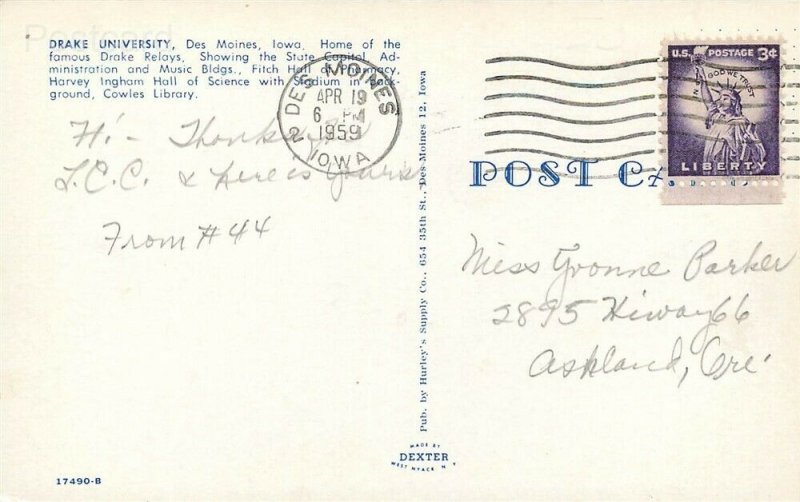 DRAKE UNIVERSITY, Des Moines, Iowa. Home of the
famous Drake Relays, Showing the State Capitol, Ad-
ministration and Music Bldgs., Fitch Hall of Pharmacy,
Harvey Ingham Hall of Science with Stadium in Back-
ground, Cowles Library.
Hi - Thanks for
L.C.C. & here is yours
From #44
DES MOINES
2
APR 19
6 PM
1959
IOWA
U.S. POSTAGE 3¢
IN GOD WE TRUST
LIBERTY
POST CA
Miss Yvonne Parker
2895 Hiway 66
Ashland, Ore.
Pub. by Hurley's Supply Co., 654 35th St., Des Moines 12, Iowa
MADE BY
DEXTER
WEST NYACK, N.Y.
17490-B
Postcard